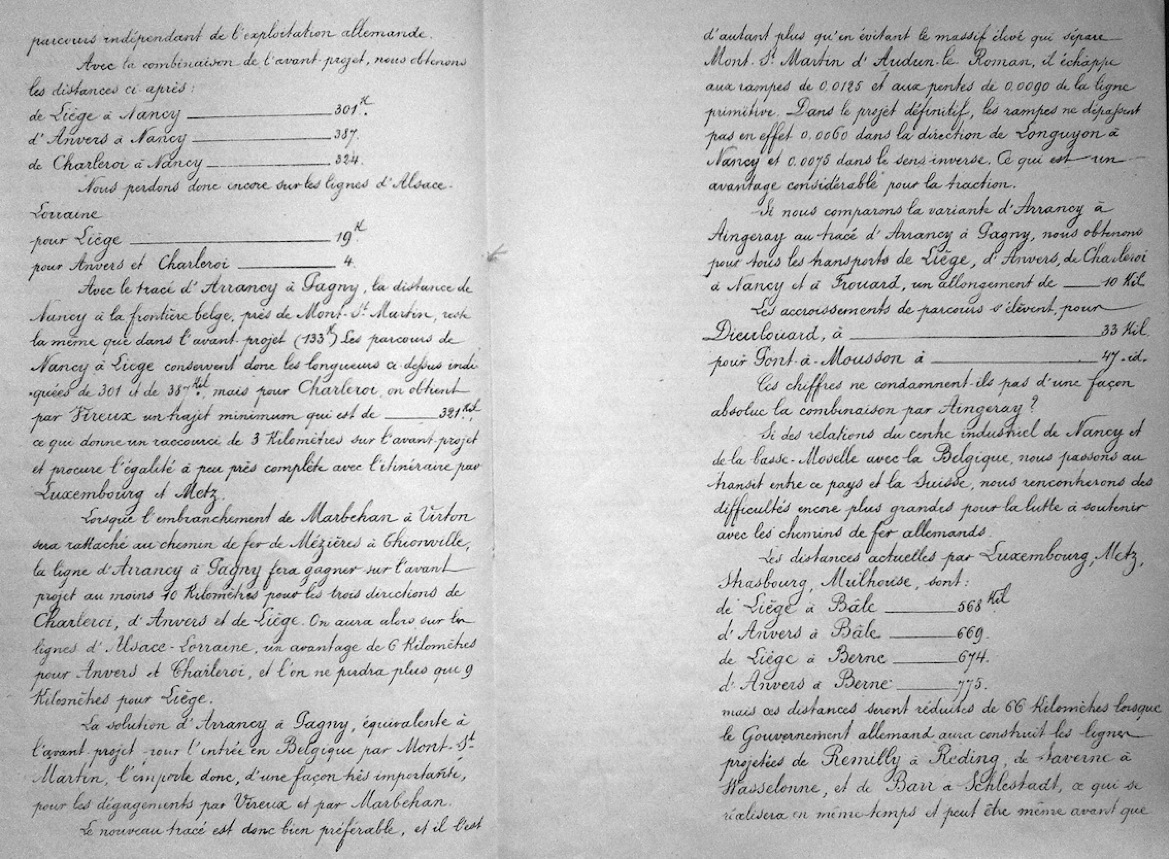 parcours indépendant de l'exploitation allemande.
Avec la combinaison de l'avant-projet, nous obtenons
les distances ci après :
de Liège à Nancy 301K.
d'Anvers à Nancy 387.
de Charleroi à Nancy 324.
Nous perdons donc encore sur les lignes d'Alsace-
Lorraine
pour Liège 19K.
pour Anvers et Charleroi 4.
Avec le tracé d'Arrancy à Pagny, la distance de
Nancy à la frontière belge, près de Mont-St Martin, reste
la même que dans l'avant-projet (133K) Les parcours de
Nancy à Liège conservent donc les longueurs ci-dessus indi-
quées de 301 et de 387Kil., mais pour Charleroi, on obtient
par Vireux un trajet minimum qui est de 321 Kil,
ce qui donne un raccourci de 3 Kilomètres sur l'avant-projet
et procure l'égalité à peu près complète avec l'itinéraire par
Luxembourg et Metz.
Lorsque l'embranchement de Marbehan à Virton
sera rattaché au chemin de fer de Mézières à Thionville,
la ligne d'Arrancy à Pagny fera gagner sur l'avant
projet au moins 10 Kilomètres pour les trois directions de
Charleroi, d'Anvers et de Liège. On aura alors sur les
lignes d'Alsace-Lorraine, un avantage de 6 Kilomètres
pour Anvers et Charleroi, et l'on ne perdra plus que 9
Kilomètres pour Liège.
La solution d'Arrancy à Pagny, équivalente à
l'avant-projet pour l'entrée en Belgique par Mont-St
Martin, l'emporte donc, d'une façon très importante,
pour les dégagements par Vireux et par Marbehan.
Le nouveau tracé est donc bien préférable, et il l'est
d'autant plus qu'en évitant le massif élevé qui sépare
Mont-St Martin d'Audun-le-Roman, il échappe
aux rampes de 0,0125 et aux pentes de 0,0090 de la ligne
primitive. Dans le projet définitif, les rampes ne dépassent
pas en effet 0,0060 dans la direction de Longuyon à
Nancy et 0,0075 dans le sens inverse. Ce qui est un
avantage considérable pour la traction.
Si nous comparons la variante d'Arrancy à
Aingeray au tracé d'Arrancy à Pagny, nous obtenons
pour tous les transports de Liège, d'Anvers, de Charleroi
à Nancy et à Frouard, un allongement de 10 Kil
Les accroissements de parcours s'élèvent, pour
Dieulouard, à 33 Kil
pour Pont-à-Mousson à 47 id.
Ces chiffres ne condamnent-ils pas d'une façon
absolue la combinaison par Aingeray ?
Si des relations du centre industriel de Nancy et
de la basse-Moselle avec la Belgique, nous passons au
transit entre ce pays et la Suisse, nous rencontrerons des
difficultés encore plus grandes pour la lutte à soutenir
avec les chemins de fer allemands.
Les distances actuelles par Luxembourg, Metz,
Strasbourg, Mulhouse, sont :
de Liège à Bâle 568 Kil
d'Anvers à Bâle 669.
de Liège à Berne 674.
d'Anvers à Berne 775.
mais ces distances seront réduites de 66 Kilomètres lorsque
le Gouvernement allemand aura construit les lignes
projetées de Remilly à Réding, de Saverne à
Wasselonne, et de Barr à Schlestadt, ce qui se
réalisera en même temps et peut être même avant que